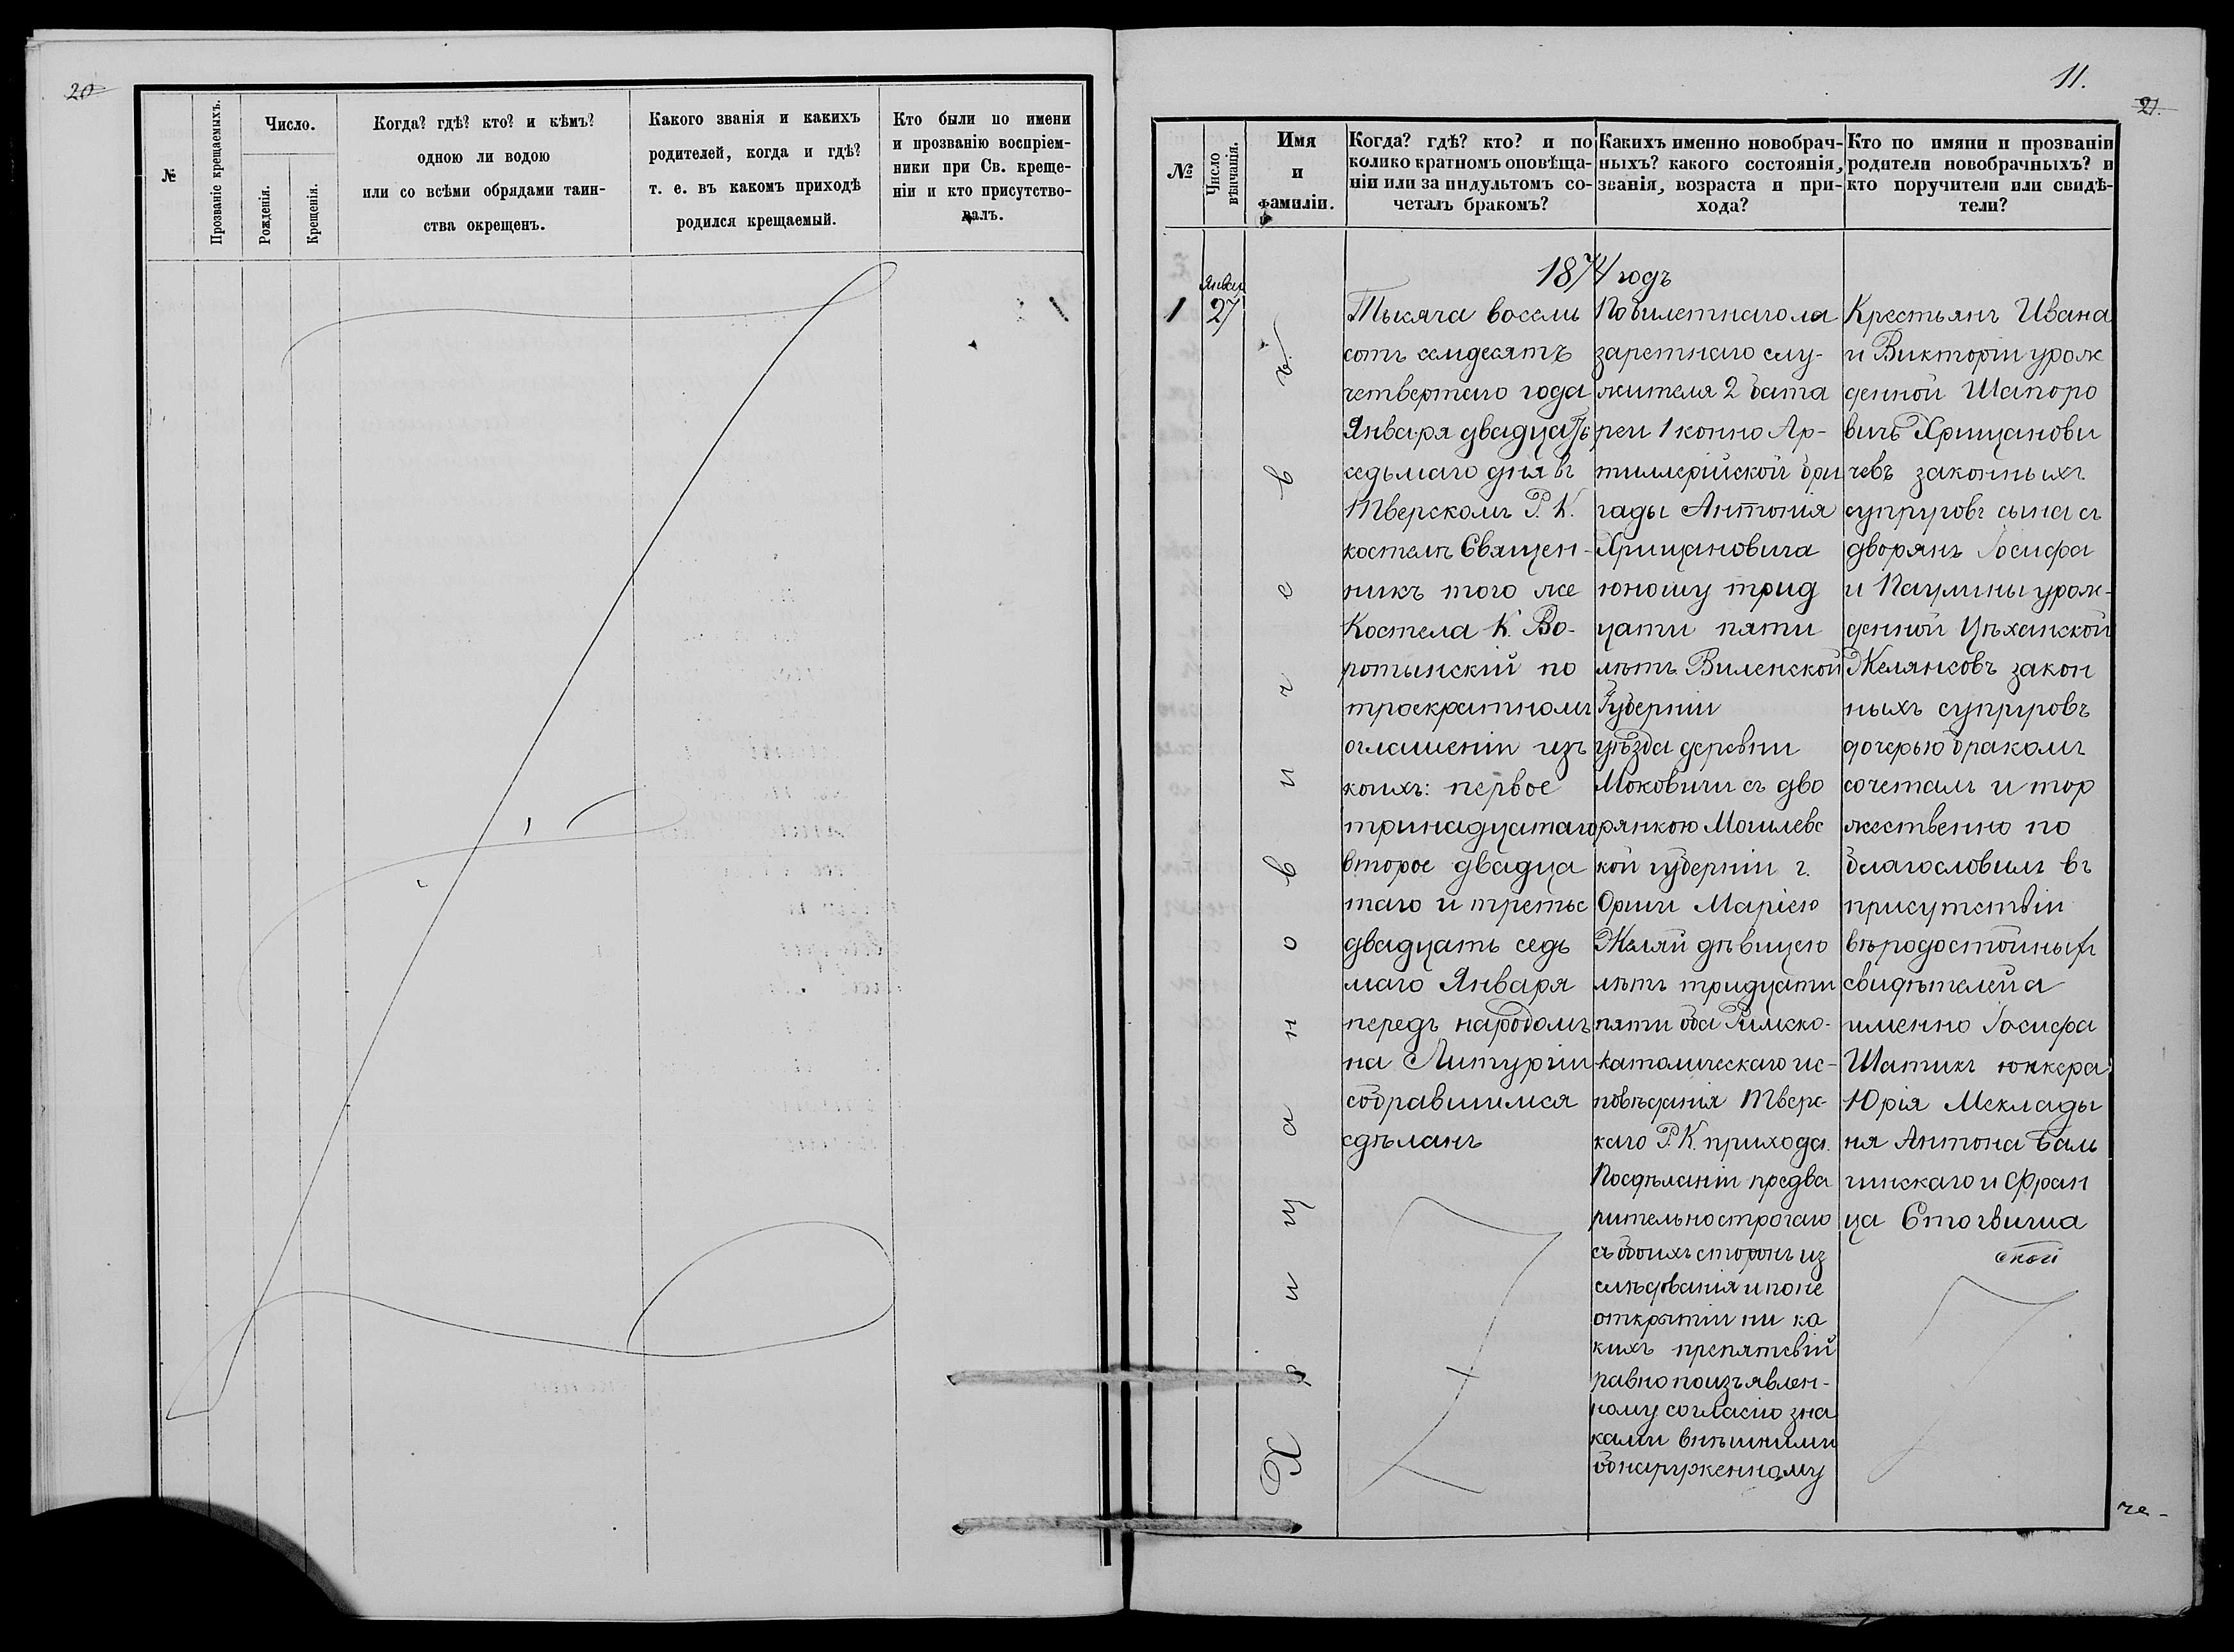 20
№
Прозваніе крещаемыхъ.
Число.
Рожденія.
Крещенія.
Когда? гдѣ? кто? и кѣмъ?
одною ли водою
или со всѣми обрядами таин-
ства окрещенъ.
Какого званія и какихъ
родителей, когда и гдѣ?
т. е. въ какомъ приходѣ
родился крещаемый.
Кто были по имени
и прозванію воспріем-
ники при Св. креще-
ніи и кто присутство-
валъ.
11.
21.
№
Число вѣнчанія.
Имя
и
фамиліи.
Когда? гдѣ? кто? и по
колико кратномъ оповѣща-
ніи или за индультомъ со-
четалъ бракомъ?
Какихъ именно новобрач-
ныхъ? какого состоянія,
званія, возраста и при-
хода?
Кто по имяни и прозваніи
родители новобрачныхъ? и
кто поручители или свидѣ-
тели?
1874 годъ
1
27
Хрищановичевъ
Тысяча восемь
сотъ семдесятъ
четвертаго года
Января двадцать
седьмаго дня въ
Тверскомъ Р. К.
костелѣ Священ-
никъ того же
Костела К. Во-
ротынскій по
троекратномъ
оглашеніи изъ
коихъ: первое
тринадцатаго
второе двадца
таго и третье
двадцать седь
маго Января
передъ народомъ
на Литургіи
собравшимся
сдѣланъ
Побилетнаго ла
заретнаго слу-
жителя 2 бата
реи 1 конно Ар-
тиллерійской бри
гады Антонія
Хрищановича
юношу трид
цати пяти
лѣтъ Виленской
Губерніи
уѣзда деревни
Моковичи съ дво
рянкою Могилевс
кой губерніи г.
Орши Маріею
Желяй дѣвицею
лѣтъ тридцати
пяти оба Римско-
католическаго ис-
повѣданія Тверс-
каго Р. К. прихода.
Посдѣланіи предва
рительно строгаго
съ обоихъ сторонъ из
слѣдованія и по не
открытіи ни ка
кихъ препятсвій
равно по изъявлен-
ному согласію зна
ками внѣшними
обнаруженному
Крестьянъ Ивана
и Викторіи урож
денной Шапоро
вичъ Хрищанови
чевъ законныхъ
супруговъ сына съ
дворянъ Іосифа
и Паулины урож-
денной Цѣханской
Желянсовъ закон
ныхъ супруговъ
дочерью бракомъ
сочеталъ и тор
жественно по
благословилъ въ
присутствіи
вѣродостойныхъ
свидѣтелей а
именно Іосифа
Шатихъ юнкера
Юрія Меклады
ня Антона Баль
гинскаго и Фран
ца Стогвигиа
ской
че-